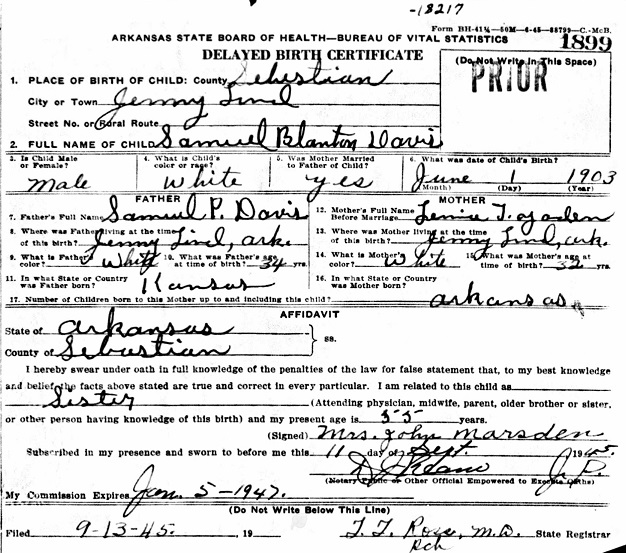 -18217
Form BH-41¼—50M—6-45—88799—C.-McB.
ARKANSAS STATE BOARD OF HEALTH—BUREAU OF VITAL STATISTICS
1899
DELAYED BIRTH CERTIFICATE
(Do Not Write In This Space)
PRIOR
1. PLACE OF BIRTH OF CHILD: County Sebastian
City or Town Jenny Lind
Street No. or Rural Route
2. FULL NAME OF CHILD Samuel Blanton Davis
3. Is Child Male or Female? 4. What is Child's color or race? 5. Was Mother Married to Father of Child? 6. What was date of Child's Birth?
Male White yes June 1 1903
(Month) (Day) (Year)
FATHER MOTHER
7. Father's Full Name Samuel P. Davis 12. Mother's Full Name Before Marriage T. Ogden
8. Where was Father living at the time of this birth? Jenny Lind, Ark. 13. Where was Mother living at the time of this birth? Jenny Lind, Ark.
9. What is Father's color? White 10. What was Father's age at time of birth? 34 yrs. 14. What is Mother's color? White 15. What was Mother's age at time of birth? 32 yrs.
11. In what State or Country was Father born? Kansas 16. In what State or Country was Mother born? Arkansas
17. Number of Children born to this Mother up to and including this child?
AFFIDAVIT
State of Arkansas
County of Sebastian
ss.
I hereby swear under oath in full knowledge of the penalties of the law for false statement that, to my best knowledge
and belief the facts above stated are true and correct in every particular. I am related to this child as
Sister (Attending physician, midwife, parent, older brother or sister,
or other person having knowledge of this birth) and my present age is 55 years.
(Signed) Mrs. John Marsden
Subscribed in my presence and sworn to before me this 11 day of Sept. 1945.
J. P.
(Notary Public or Other Official Empowered to Execute Oaths)
My Commission Expires Jan. 5-1947.
(Do Not Write Below This Line)
Filed 9-13-45. , 19 T. T. Ross, M.D. State Registrar